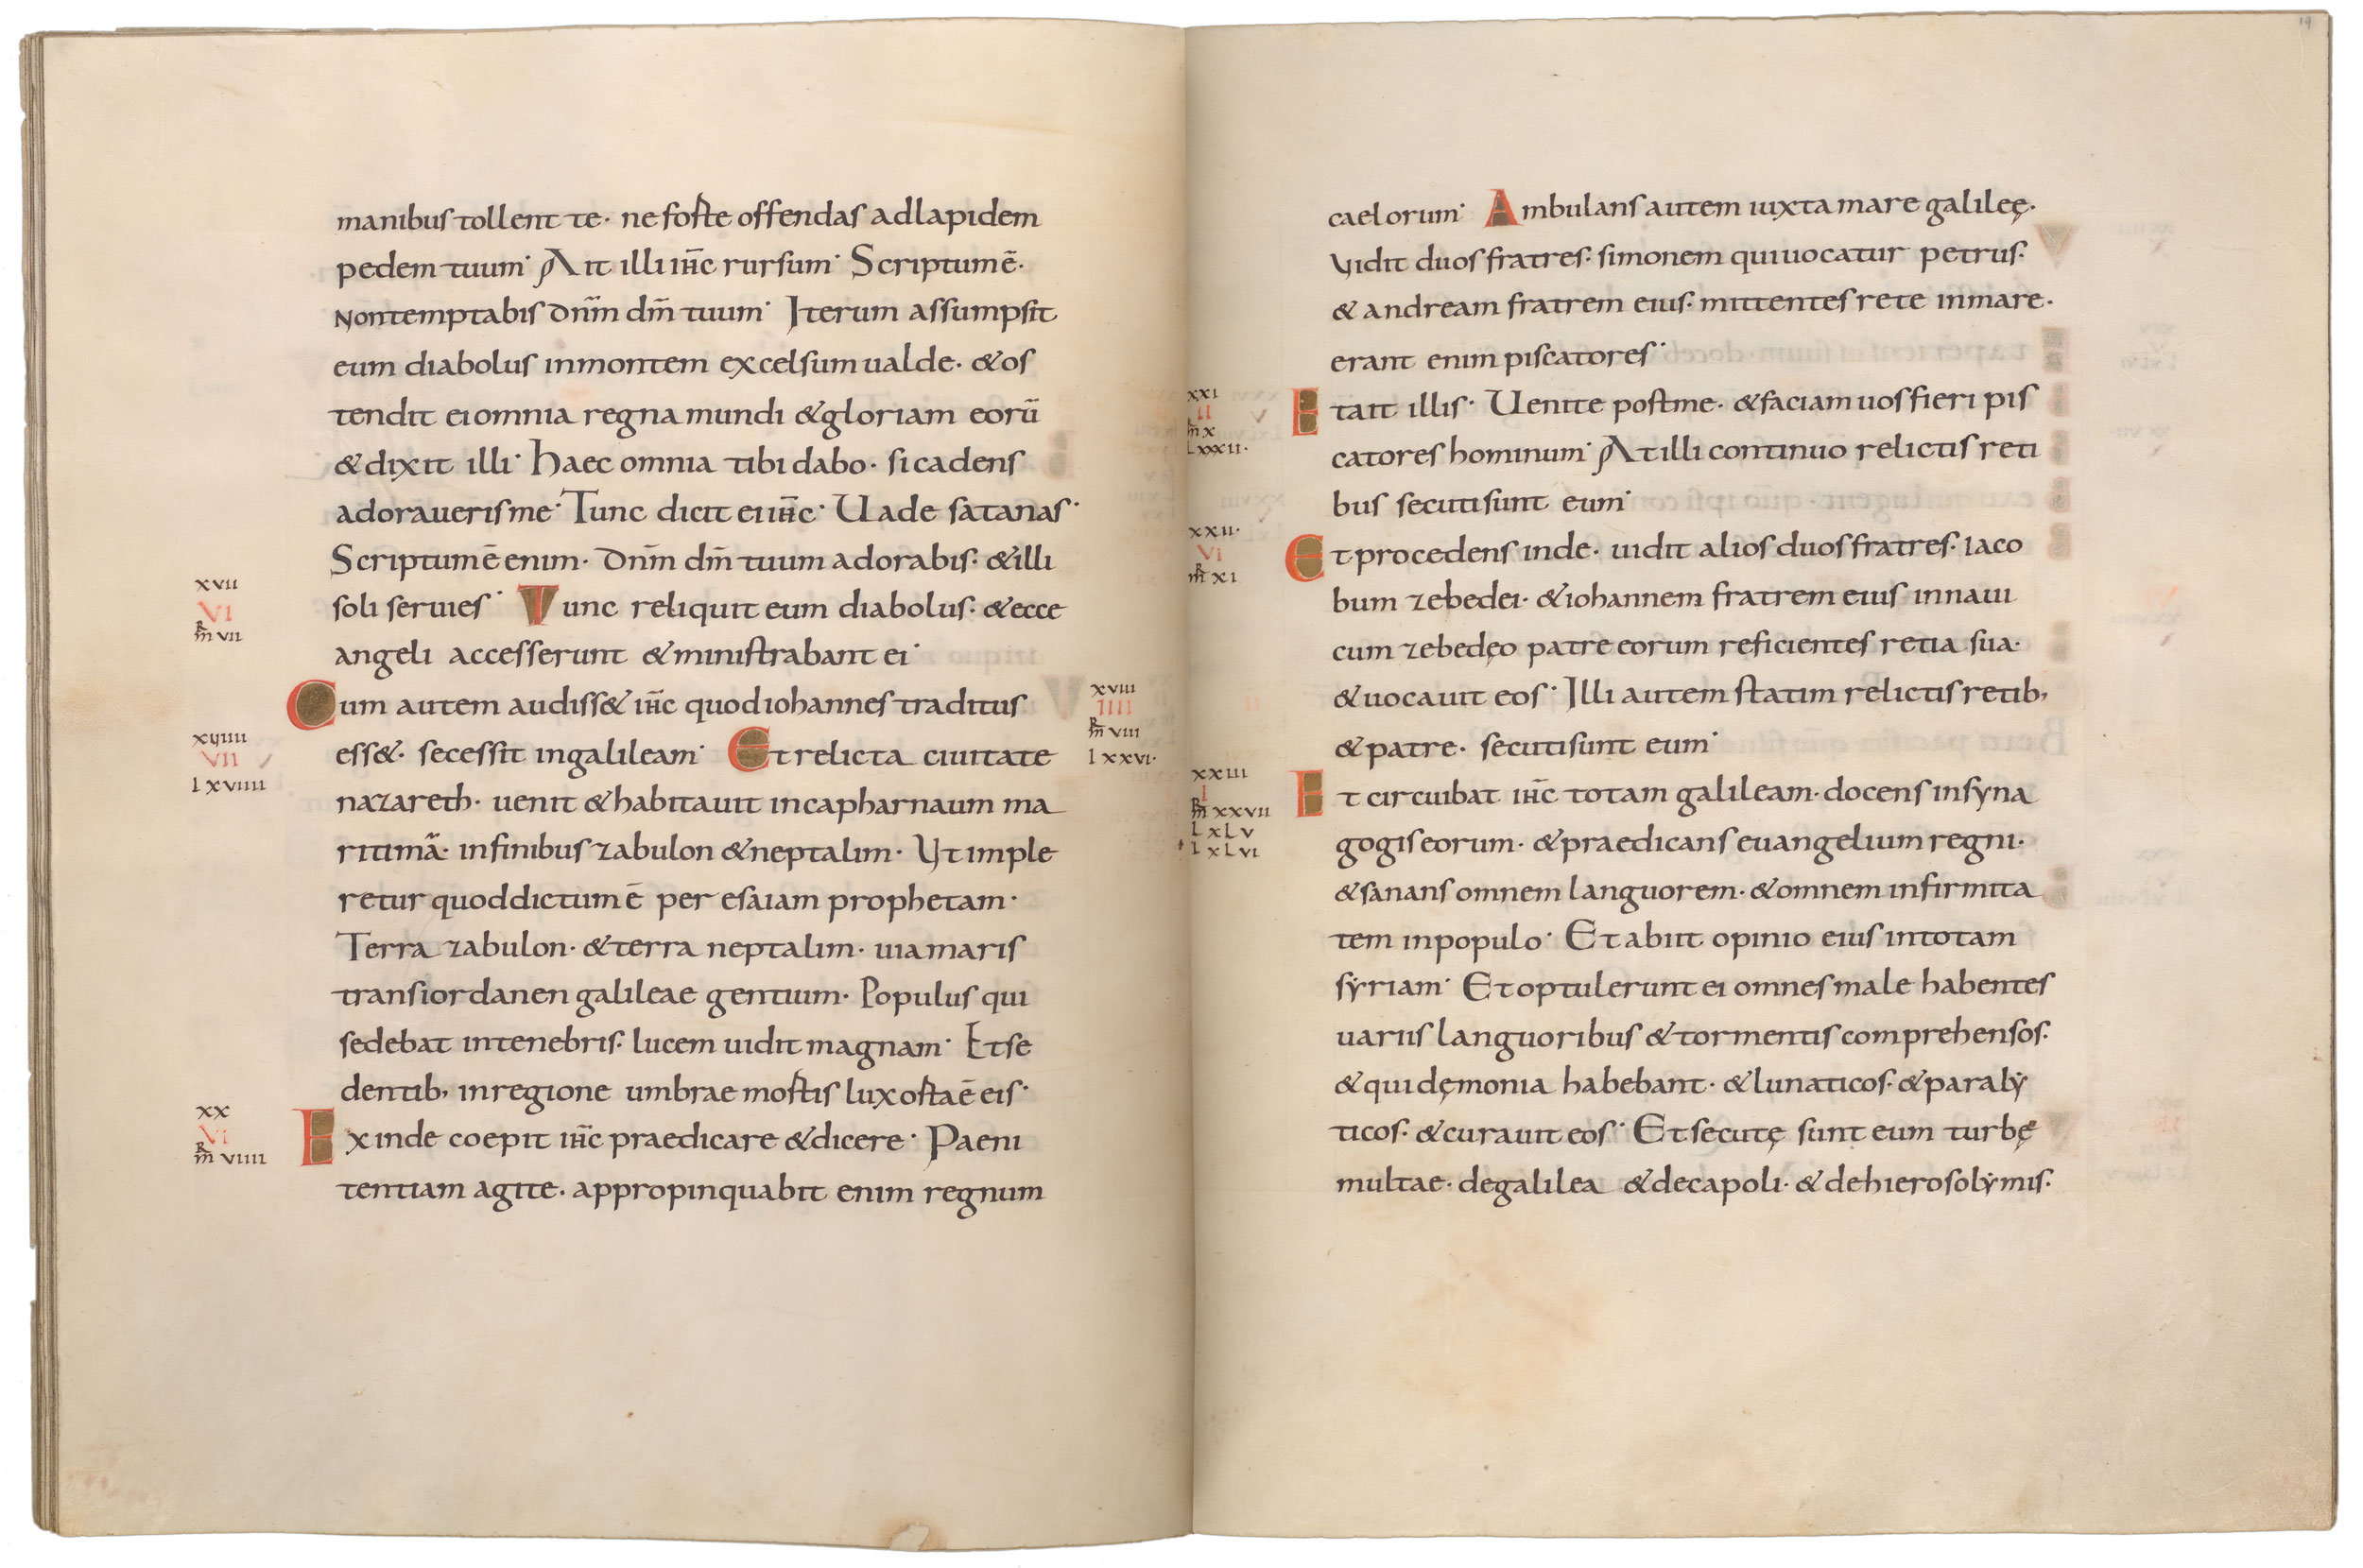 manibus tollent te· ne forte offendas ad lapidem
pedem tuum· Ait illi ihc̄ rursum· Scriptum ē·
Non temptabis dn̄m dm̄ tuum· Iterum assumpsit
eum diabolus in montem excelsum ualde· & os
tendit ei omnia regna mundi & gloriam eorū
& dixit illi· Haec omnia tibi dabo· si cadens
adoraueris me· Tunc dicit ei ihc̄· Uade satanas·
Scriptum ē enim· Dn̄m dm̄ tuum adorabis· & illi
xvii
soli seruies· Tunc reliquit eum diabolus· & ecce
VI
m̄ vii
angeli accesserunt & ministrabant ei·
Cum autem audiss& ihc̄ quod iohannes traditus
xviii
IIII
m̄ viii
lxxvi·
xviiii
VII
lxviiii
ess&· secessit in galileam· Et relicta ciuitate
nazareth· uenit & habitauit in capharnaum ma
ritimā· in finibus zabulon & neptalim· Ut imple
retur quod dictum ē per esaiam prophetam·
Terra zabulon· & terra neptalim· uia maris
trans iordanen galileae gentium· Populus qui
sedebat in tenebris· lucem uidit magnam· Et se
dentib, in regione umbrae mortis lux orta ē eis·
xx
VI
m̄ viiii
Exinde coepit ihc̄ praedicare & dicere· Paeni
tentiam agite· appropinquabit enim regnum
19
caelorum· Ambulans autem iuxta mare galileę·
Uidit duos fratres· simonem qui uocatur petrus·
& andream fratrem eius· mittentes rete in mare·
erant enim piscatores·
xxi
II
m̄ x
lxxxii·
Et ait illis· Uenite post me· & faciam uos fieri pis
catores hominum· At illi continuo relictis reti
bus secuti sunt eum·
xxii·
VI
m̄ xi
Et procedens inde· uidit alios duos fratres· iaco
bum zebedei· & iohannem fratrem eius in naui
cum zebedęo patre eorum reficientes retia sua·
& uocauit eos· Illi autem statim relictis retib,
& patre· secuti sunt eum·
xxiii
I
m̄ xxvii
LxLv
LxLvi
Et circuibat ihc̄ totam galileam· docens in syna
gogis eorum· & praedicans euangelium regni·
& sanans omnem languorem· & omnem infirmita
tem in populo· Et abiit opinio eius in totam
sẏriam· Et optulerunt ei omnes male habentes
uariis languoribus & tormentis comprehensos·
& qui dęmonia habebant· & lunaticos· & paralẏ
ticos· & curauit eos· Et secutę sunt eum turbę
multae· de galilea & decapoli· & de hierosolẏmis·